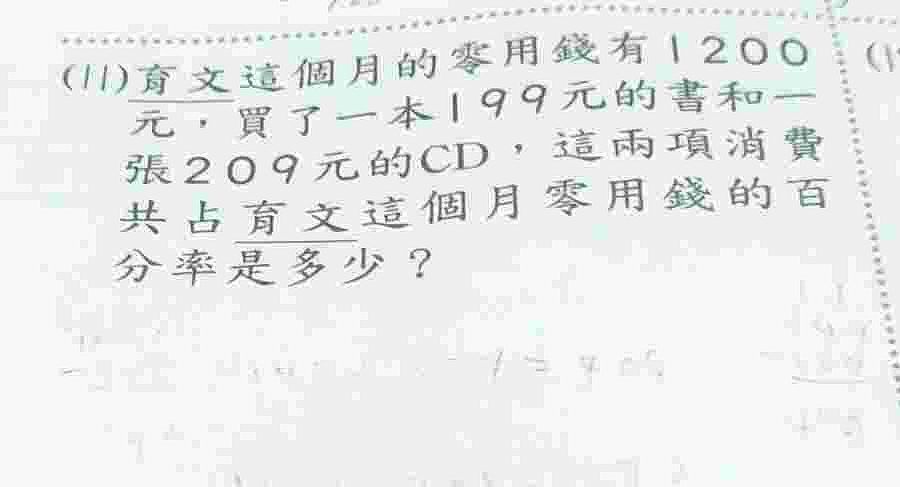 (11)育文這個月的零用錢有1200
元，買了一本199元的書和一
張209元的CD，這兩項消費
共占育文這個月零用錢的百
分率是多少？